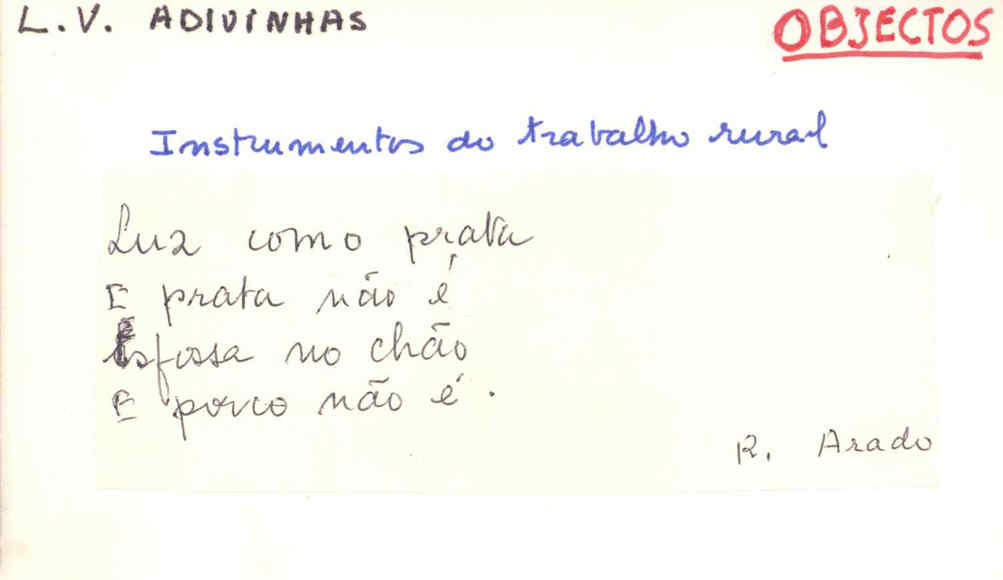 L.V. ADIVINHAS
OBJECTOS
Instrumentos do trabalho rural
Luz como prata
E prata não é
Esfossa no chão
E porco não é.
R. Arado